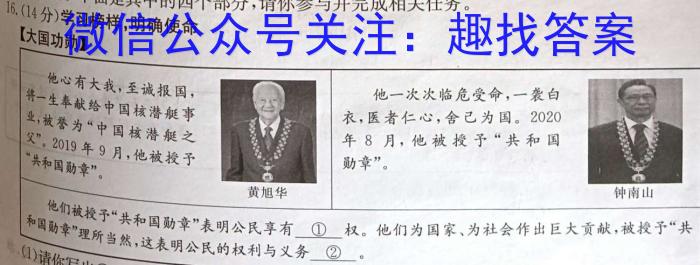 中的四个部分,请你参与并完成相关任务。
16.(14分)学习榜样,明确使命
微信公众号关注:趣找答案
【大国功勋】
他心有大我,至诚报国,
将一生奉献给中国核潜艇事
业,被誉为“中国核潜艇之
父”。2019年9月,他被授予
“共和国勋章”。
黄旭华
他一次次临危受命,一袭白
衣,医者仁心,舍己为国。2020
年8月,他被授予“共和国
勋章”。
钟南山
他们被授予“共和国勋章”表明公民享有 ① 权。他们为国家、为社会作出巨大贡献,被授予“共
和国勋章”理所当然,这表明公民的权利与义务 ② 。
(1)请你写出